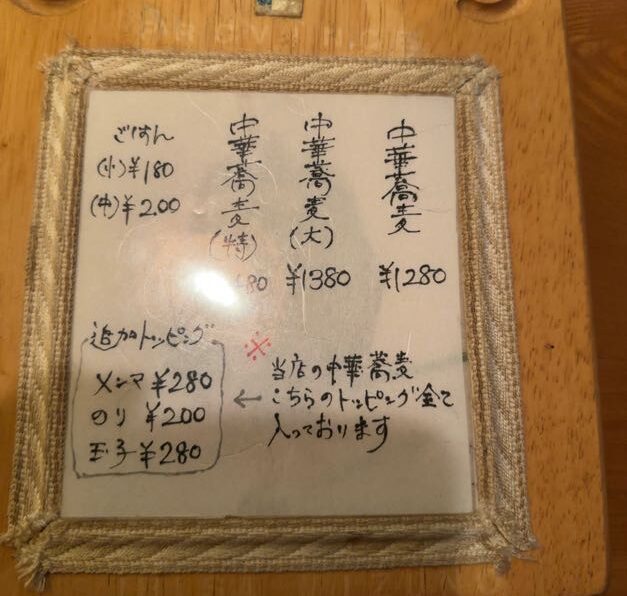 中華蕎麦
¥1280
中華蕎麦(大)
¥1380
中華蕎麦(特)
80
ごはん
(小)¥180
(中)¥200
追加トッピング
メンマ ¥280
のり ¥200
玉子 ¥280
※
当店の中華蕎麦
← こちらのトッピング全て
入っております